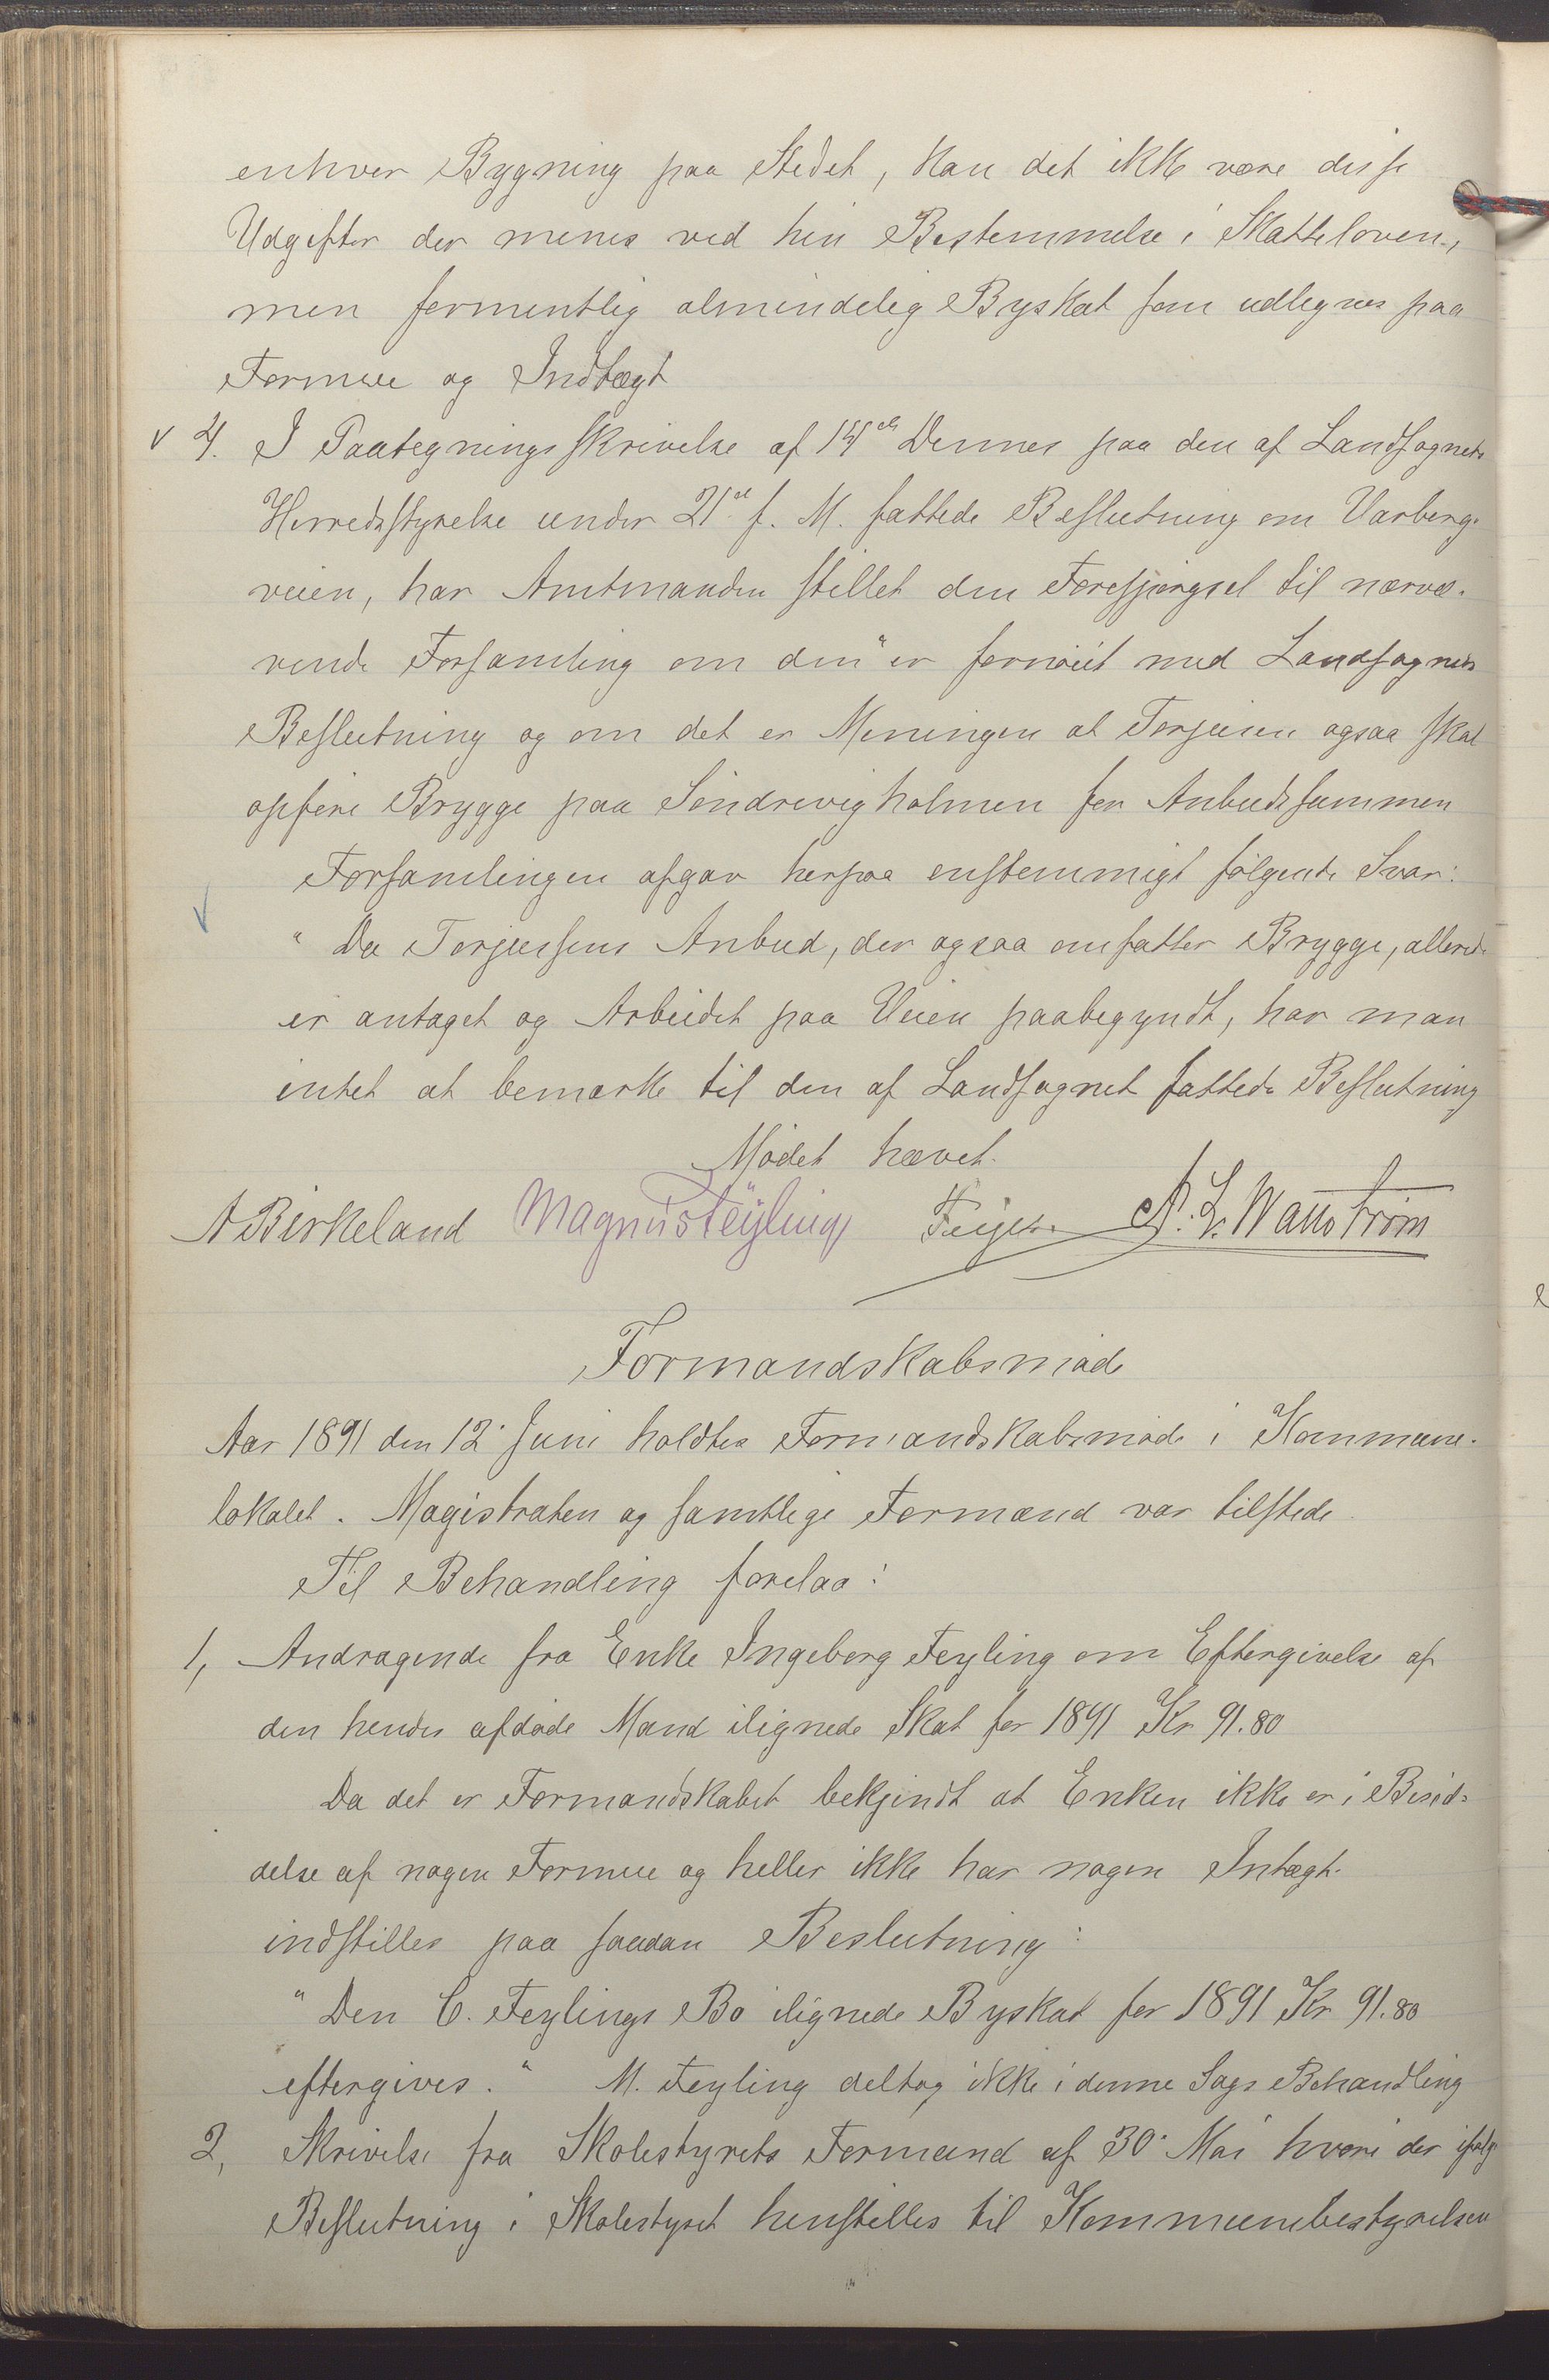 enhver Bygning paa Stedet, kan det ikke være disse
Udgifter der menes ved hin Bestemmelse i Skatteloven,
men formentlig almindelig Byskat som udlignes paa
Formue og Indtægt
4. I Paategningsskrivelse af 14de Dennes paa den af Landsognets
Herredsstyrelse under 21de f. M. fattede Beslutning om Varberg-
veien, har Amtmanden stillet den Forespørgsel til nærvæ-
rende Forsamling om den "er fornøiet med Landsognets
Beslutning og om det er Meningen at Torjusen ogsaa skal
opføre Brygge paa Søndrevigholmen for Anbudssummen
Forsamlingen afgav herpaa enstemmigt følgende Svar:
"Da Torjussens Anbud, der ogsaa omfatter Brygge, allerede
er antaget og Arbeidet paa Veien paabegyndt, har man
intet at bemærke til den af Landsognet fattede Beslutning
Mødet hævet.
A Birkeland Magnus Feyling
Formandskabsmøde
Aar 1891 den 12. Juni holdtes Formandskabsmøde i Kommune-
lokalet. Magistraten og samtlige Formænd var tilstede
Til Behandling forelaa:
1, Andragende fra Enke Ingeborg Feyling om Eftergivelse af
den hendes afdøde Mand ilignede Skat for 1891 Kr 91.80
Da det er Formandskabet bekjendt at Enken ikke er i Besid-
delse af nogen Formue og heller ikke har nogen Intægt
indstilles paa saadan Beslutning:
"Den C. Feylings Bo ilignede Byskat for 1891 Kr 91.80
eftergives." M. Feyling deltog ikke i denne Sags Behandling
2, Skrivelse fra Skolestyrets Formand af 30. Mai hvori der ifølge
Beslutning i Skolestyret henstilles til Kommunebestyrelsen